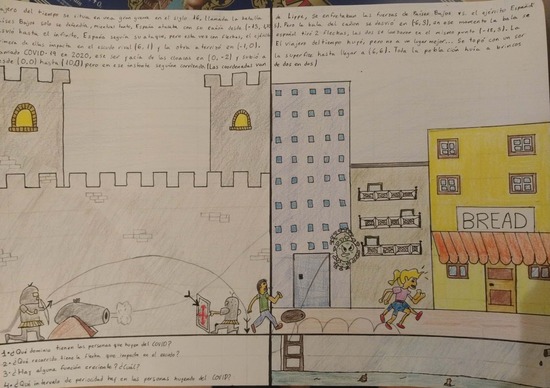 viajero del tiempo se situa en una gran guerra en el siglo 16, llamada la batalla
Países Bajos solo se defendía, mientras tanto, España contaba con un cañón desde (-15, 
subió hasta el infinito. España seguía sin atacar, pero esta vez con flechas, el ejército
primera de ellas impacta en el escudo rival (6,1) y la otra aterrizó en (-1,0).
COVID-19 en 2020, ese ser pasía de las clases en (0,-2) y creció a
desde (0,0) hasta (10,0) pero en ese instante seguían corriendo (Las coordenadas van
a Lippe, se enfrentaban las fuerzas de Países Bajos vs. el ejército Español
Pero la bala del cañón se desvió en (6,5), en ese momento la bala se
español tiró 2 flechas, las dos se lanzaron en el mismo punto (-18,3). La
El viajero del tiempo huyó, pero no a un lugar mejor... Se topó con un ser
la superficie hasta llegar a (6,6). Toda la población huía a brincos
de dos en dos)
BREAD
1-¿Qué dominio tienen las personas que huyen del COVID?
2-¿Qué recorrido tiene la flecha que impacta en el escudo?
3-¿Hay alguna función creciente? ¿Cuál?
4-¿Qué intervalo de periocidad hay en las personas huyendo del COVID?